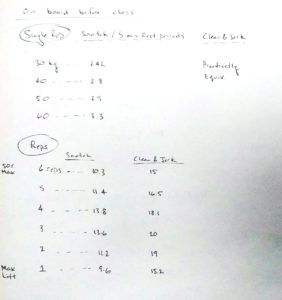 On board before class
Single Reps Snatch / 5 min Rest periods Clean & Jerk
30 kg - - - - 2.2 Practically
40 - - - - 2.8 Equiv.
50 - - - - 2.9
60 - - - - 3.3
Reps
Snatch Clean & Jerk
Max 6 reps - - - 10.3 15
5 - - - 11.4 16.5
4 - - - 13.8 18.1
3 - - - 13.6 20
2 - - - 11.2 19
Max Lift 1 - - - 9.6 15.2